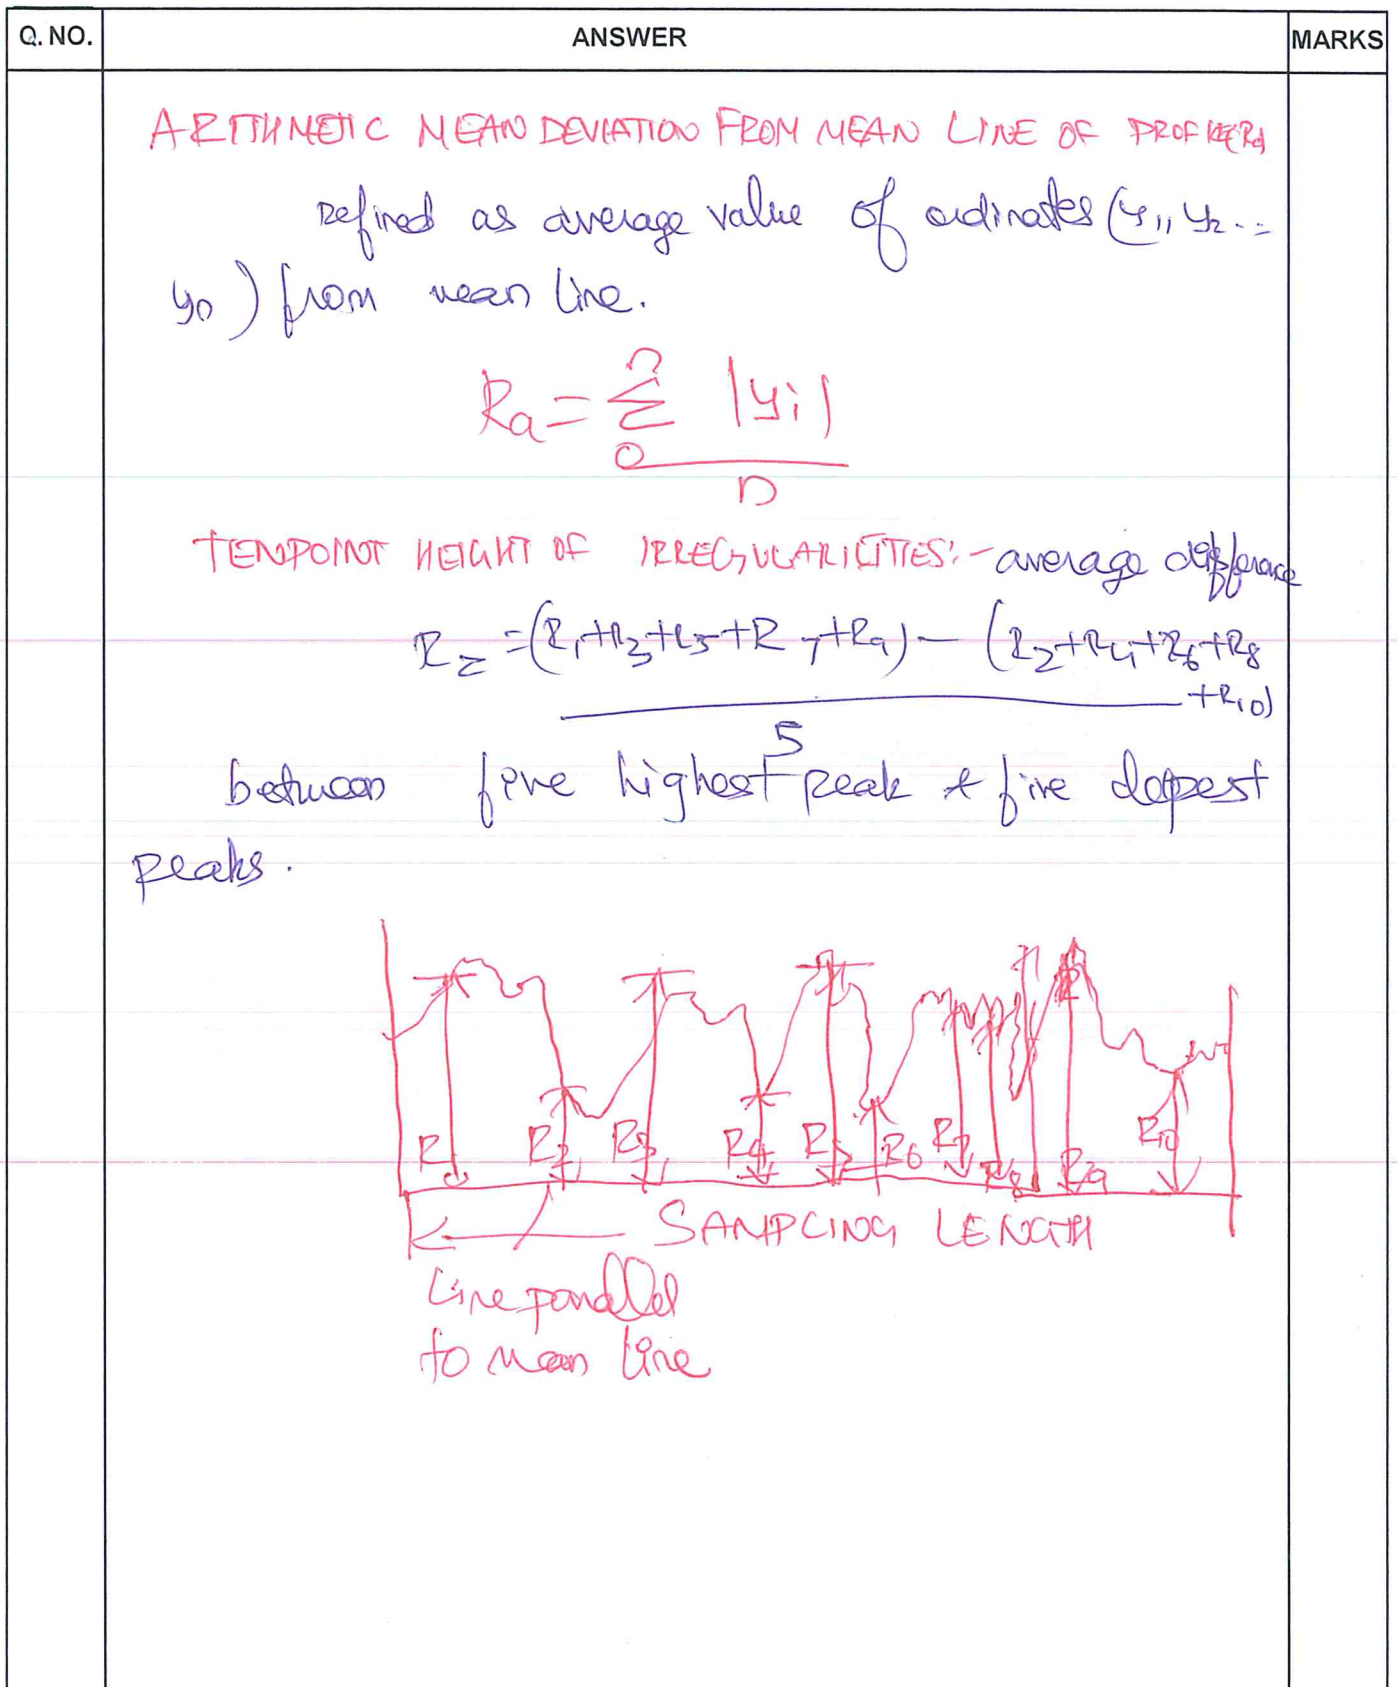 Q. NO. ANSWER MARKS
ARITHMETIC MEAN DEVIATION FROM MEAN LINE OF PROFILE(Ra)
Defined as average value of ordinates (y1, y2...
yn) from mean line.
Ra = Σ |yi|
n
0
n
TENPOINT HEIGHT OF IRREGULARILITIES:- average difference
Rz = (R1+R3+R5+R7+R9) - (R2+R4+R6+R8
+R10)
5
between five highest peak & five depest
peaks.
R R2 R3 R4 R5 R6 R7 R8 R9 R10
SAMPLING LENGTH
Line parallel
to mean line